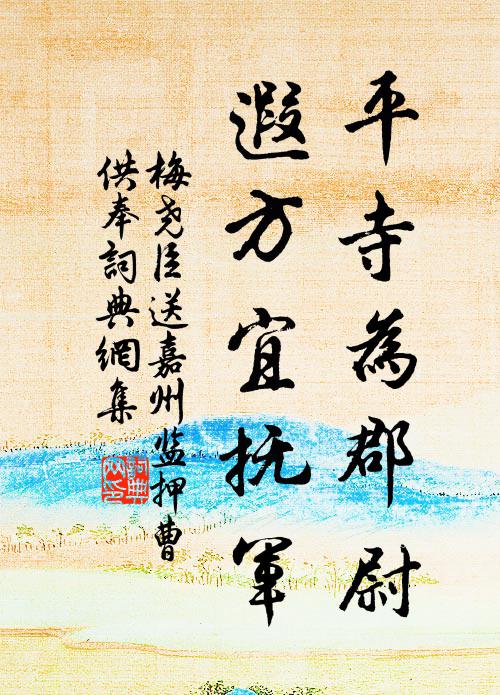 平寺為郡尉
遐方宜抚軍
梅尧臣送嘉州监押曹
供奉詞典網集
詞典